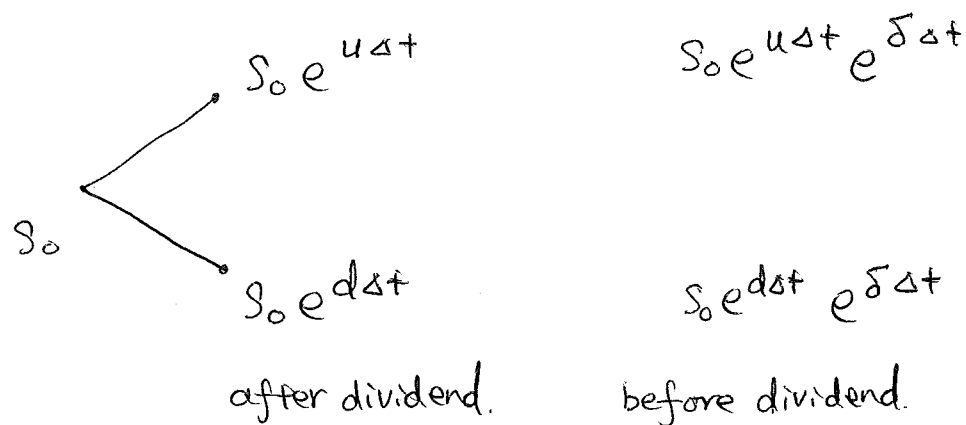 S₀e^{uΔt} S₀e^{uΔt} e^{δΔt}
S₀
S₀e^{dΔt} S₀e^{dΔt} e^{δΔt}
after dividend. before dividend.